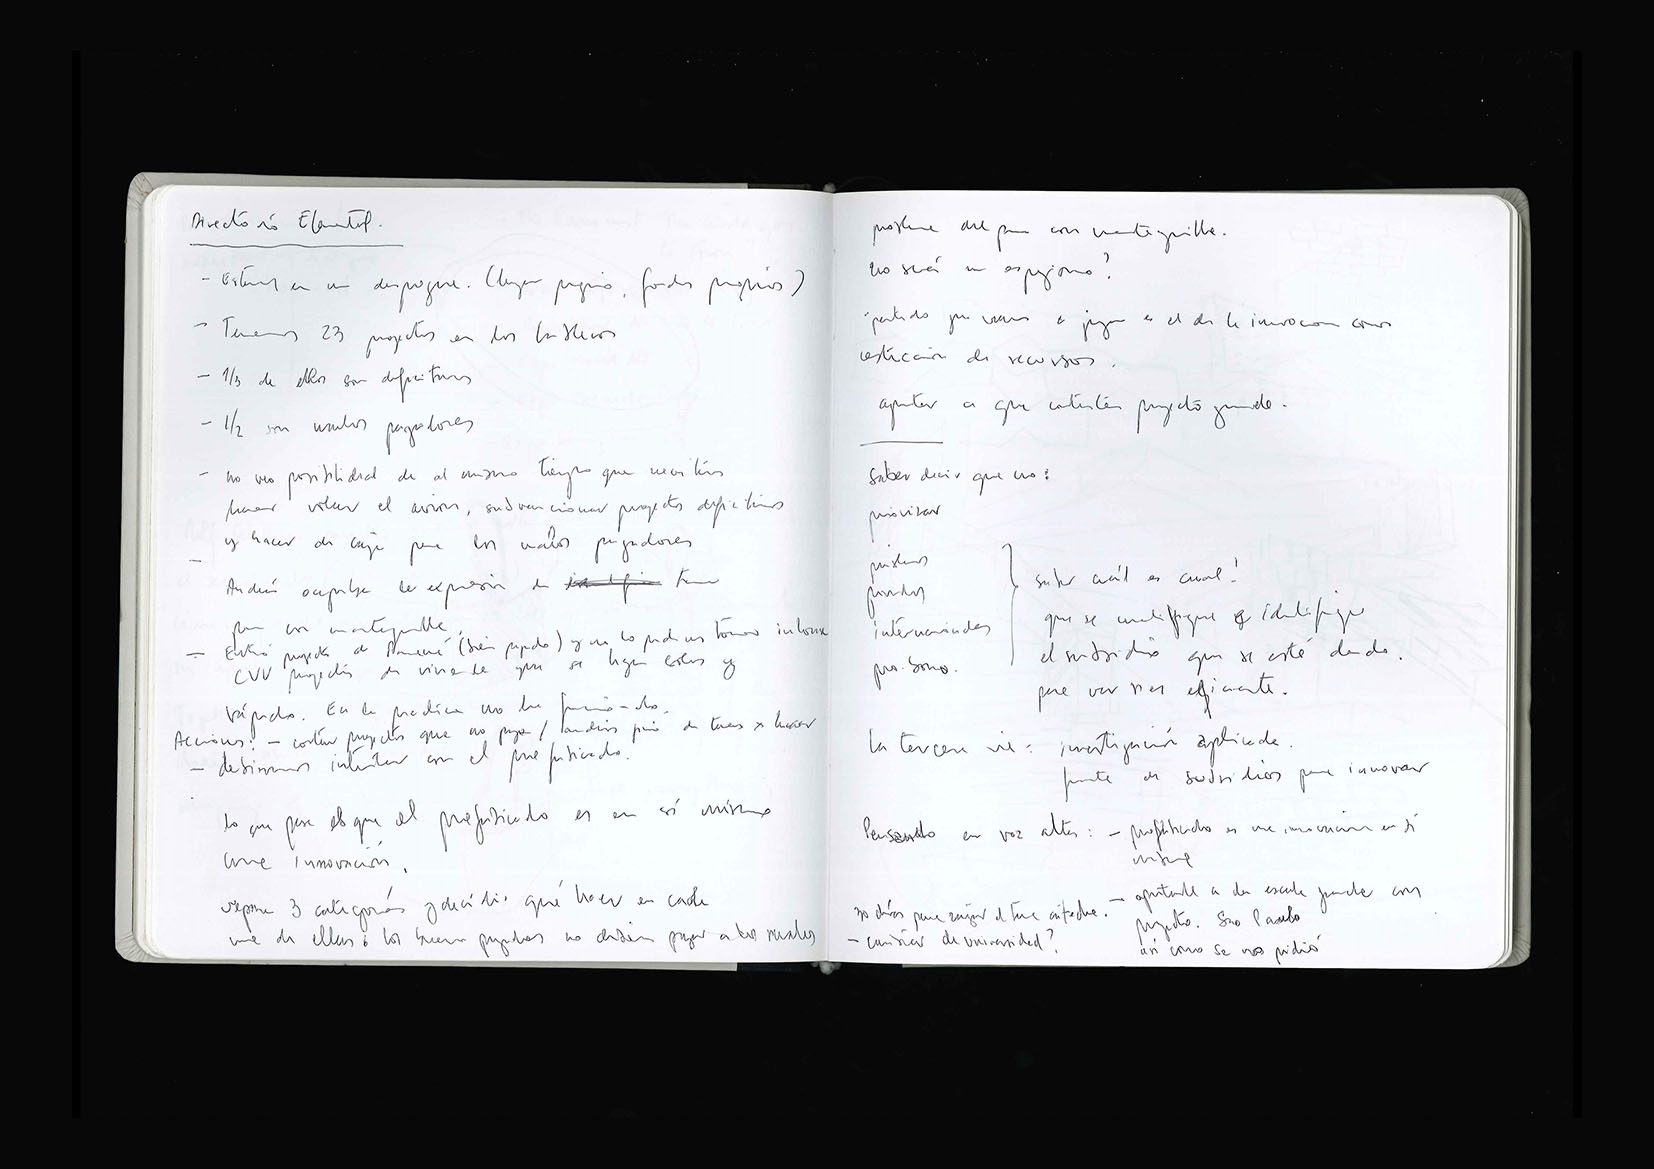 Directorio Elemental.
- Estamos en un despegue. (lugar propio, fondos propios)
- Tenemos 23 proyectos en los
- 1/3 de ellos son deficitarios
- 1/2 son malos pagadores
- no veo posibilidad de al mismo tiempo que necesitáis
hacer volar el avión, subvencionar proyectos deficitarios
y hacer de caja para los malos pagadores
- Andrés la expresión de
pan con mantequilla
- Entró proyecto de Panamá (bien pagado) y no lo pudimos tomar
CVV proyectos de vivienda que se hagan solos y
rápido. En la práctica no ha funcionado.
Acciones: - cortar proyectos que no paga / de x hacer
- debiéramos intentar con el prefabricado.
lo que pasa es que el prefabricado es en sí mismo
una innovación.
3 categorías y decidir qué hacer en cada
una de ellas: los buenos pagadores no debieran pagar a los malos
problema del pan con mantequilla.
no será un espejismo?
partido que vamos a jugar es el de la innovación como
restricción de recursos.
apuntar a que proyecto grande.
saber decir que no:
priorizar
públicos
privados
internacionales
pro-bono.
saber cuál es cual!
que se cuantifique e identifique
el subsidio que se esté dando.
para ver si es eficiente.
La tercera vía: investigación aplicada.
fuente de subsidios para innovar
Pensando en voz alta: - prefabricado es una innovación en sí
misma
- apuntarle a la escala grande con
proyecto. Sao Paulo
así como se nos pidió
30 días para
- cambiar de universidad?